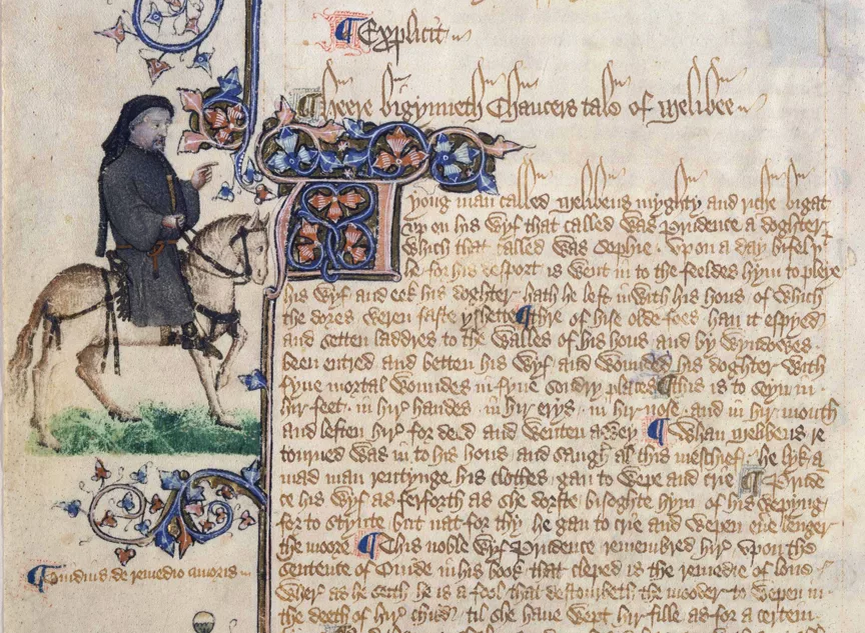 ¶ Explicit
¶ Heere bigynneth Chaucers tale of Melibee
A yong man called Melibeus myghty and riche bigat
vp on his wyf that called was Prudence a doghter
which that called was Sophie . vpon a day bifel þt
he for his desport is went in to the feeldes hym to pleye
his wyf and eek his doghter hath he left inwith his hous of which
the dores weren faste yshette ¶ thre of hise olde foes han it espyed
and setten laddres to the walles of his hous and by wyndowes
been entred and betten his wyf and wounded his doghter with
fyue mortal woundes in fyue sondry places ¶ this is to seyn in
hir feet . in hir handes . in hir erys . in hir nose . and in hir mouth
and leften hir for deed and wenten awey ¶ Whan Melibeus re
tourned was in to his hous and saugh al this meschief . he lyk a
mad man rentynge his clothes . gan to wepe and crie ¶ Pruden
ce his wyf as ferforth as she dorste bisoghte hym of his wepyng
for to stynte but nat for thy he gan to crie and wepen euer lenger
the moore ¶ This noble wyf Prudence remembred hir vpon the
sentence of Ouide in his book that cleped is the remedie of loue
wher as he seith he is a fool that destourbeth the mooder to wepen in
the deeth of hir child til she haue wept hir fille as for a certein
¶ Ouidius de remedio amoris